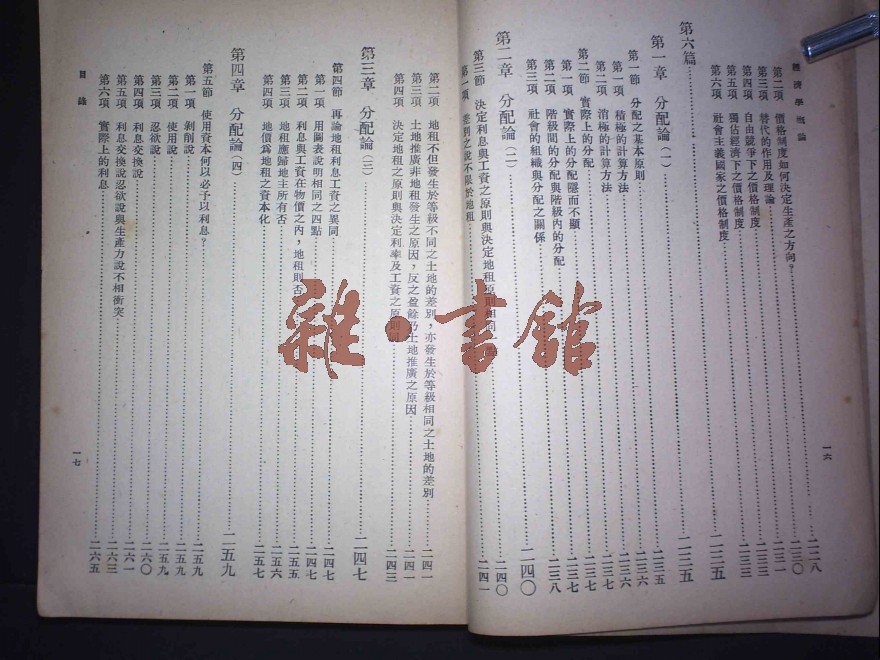 經濟學概論
第二項 價格制度如何決定生產之方向?……二二八
第三項 替代的作用及理論……二三〇
第四項 自由競爭下之價格制度……二三一
第五項 獨佔經濟下之價格制度……二三三
第六項 社會主義國家之價格制度……二三三
第六篇……二三五
第一章 分配論(一)……二三五
第一節 分配之基本原則……二三五
第一項 積極的計算方法……二三六
第二項 消極的計算方法……二三六
第二節 實際上的分配……二三七
第一項 實際上的分配隱而不顯……二三七
第二項 階級間的分配與階級內的分配……二三七
第三項 社會的組織與分配之關係……二三八
第二章 分配論(二)……二四〇
第三節 決定利息與工資之原則與決定地租原則相同一點……二四〇
第一項 差別之說不限於地租……二四一
一六
第二項 地租不但發生於等級不同之土地的差別,亦發生於等級相同之土地的差別……二四一
第三項 土地推廣非地租發生之原因,反之盈餘乃土地推廣之原因……二四一
第四項 決定地租之原則與決定利率及工資之原則
……二四三
第三章 分配論(三)……二四七
第四節 再論地租利息工資之異同……二四七
第一項 用圖表說明相同之四點……二四七
第二項 利息與工資在物價之內,地租則否……二五五
第三項 地租應歸地主所有否……二五六
第四項 地價為地租之資本化……二五七
第四章 分配論(四)……二五九
第五節 使用資本何以必予以利息?……二五九
第一項 剝削說……二五九
第二項 使用說……二五九
第三項 忍欲說……二六〇
第四項 利息交換說……二六一
第五項 利息交換說忍欲說與生產力說不相衝突……二六三
第六項 實際上的利息……二六五
目錄
一七
雜·書館